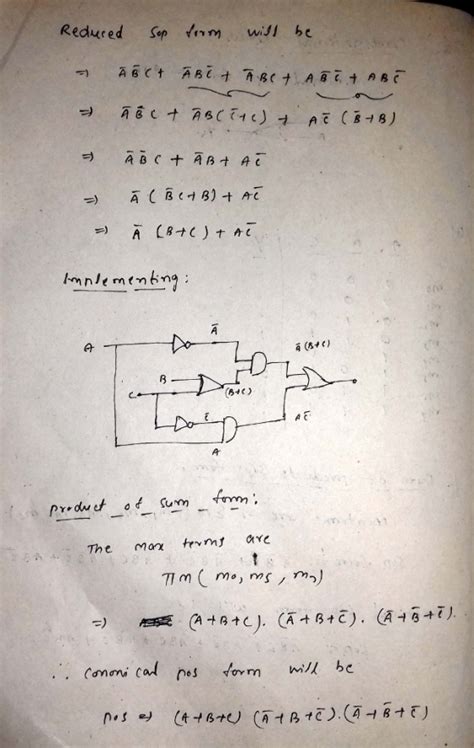 Reduced SOP form will be
⇒ A̅B̅C + A̅BC̅ + A̅BC + AB̅C̅ + ABC̅
⇒ A̅B̅C + A̅B(C̅+C) + AC̅(B̅+B)
⇒ A̅B̅C + A̅B + AC̅
⇒ A̅(B̅C+B) + AC̅
⇒ A̅(B+C) + AC̅
Implementing:
A̅
A
A̅(B+C)
B
C
(B+C)
C̅
AC̅
A
product of sum form:
The max terms are
ΠM(m0, m5, m7)
⇒ (A+B+C). (A̅+B+C̅). (A̅+B̅+C̅).
∴ cononical pos form will be
pos ⇒ (A+B+C) (A̅+B+C̅).(A̅+B̅+C̅)